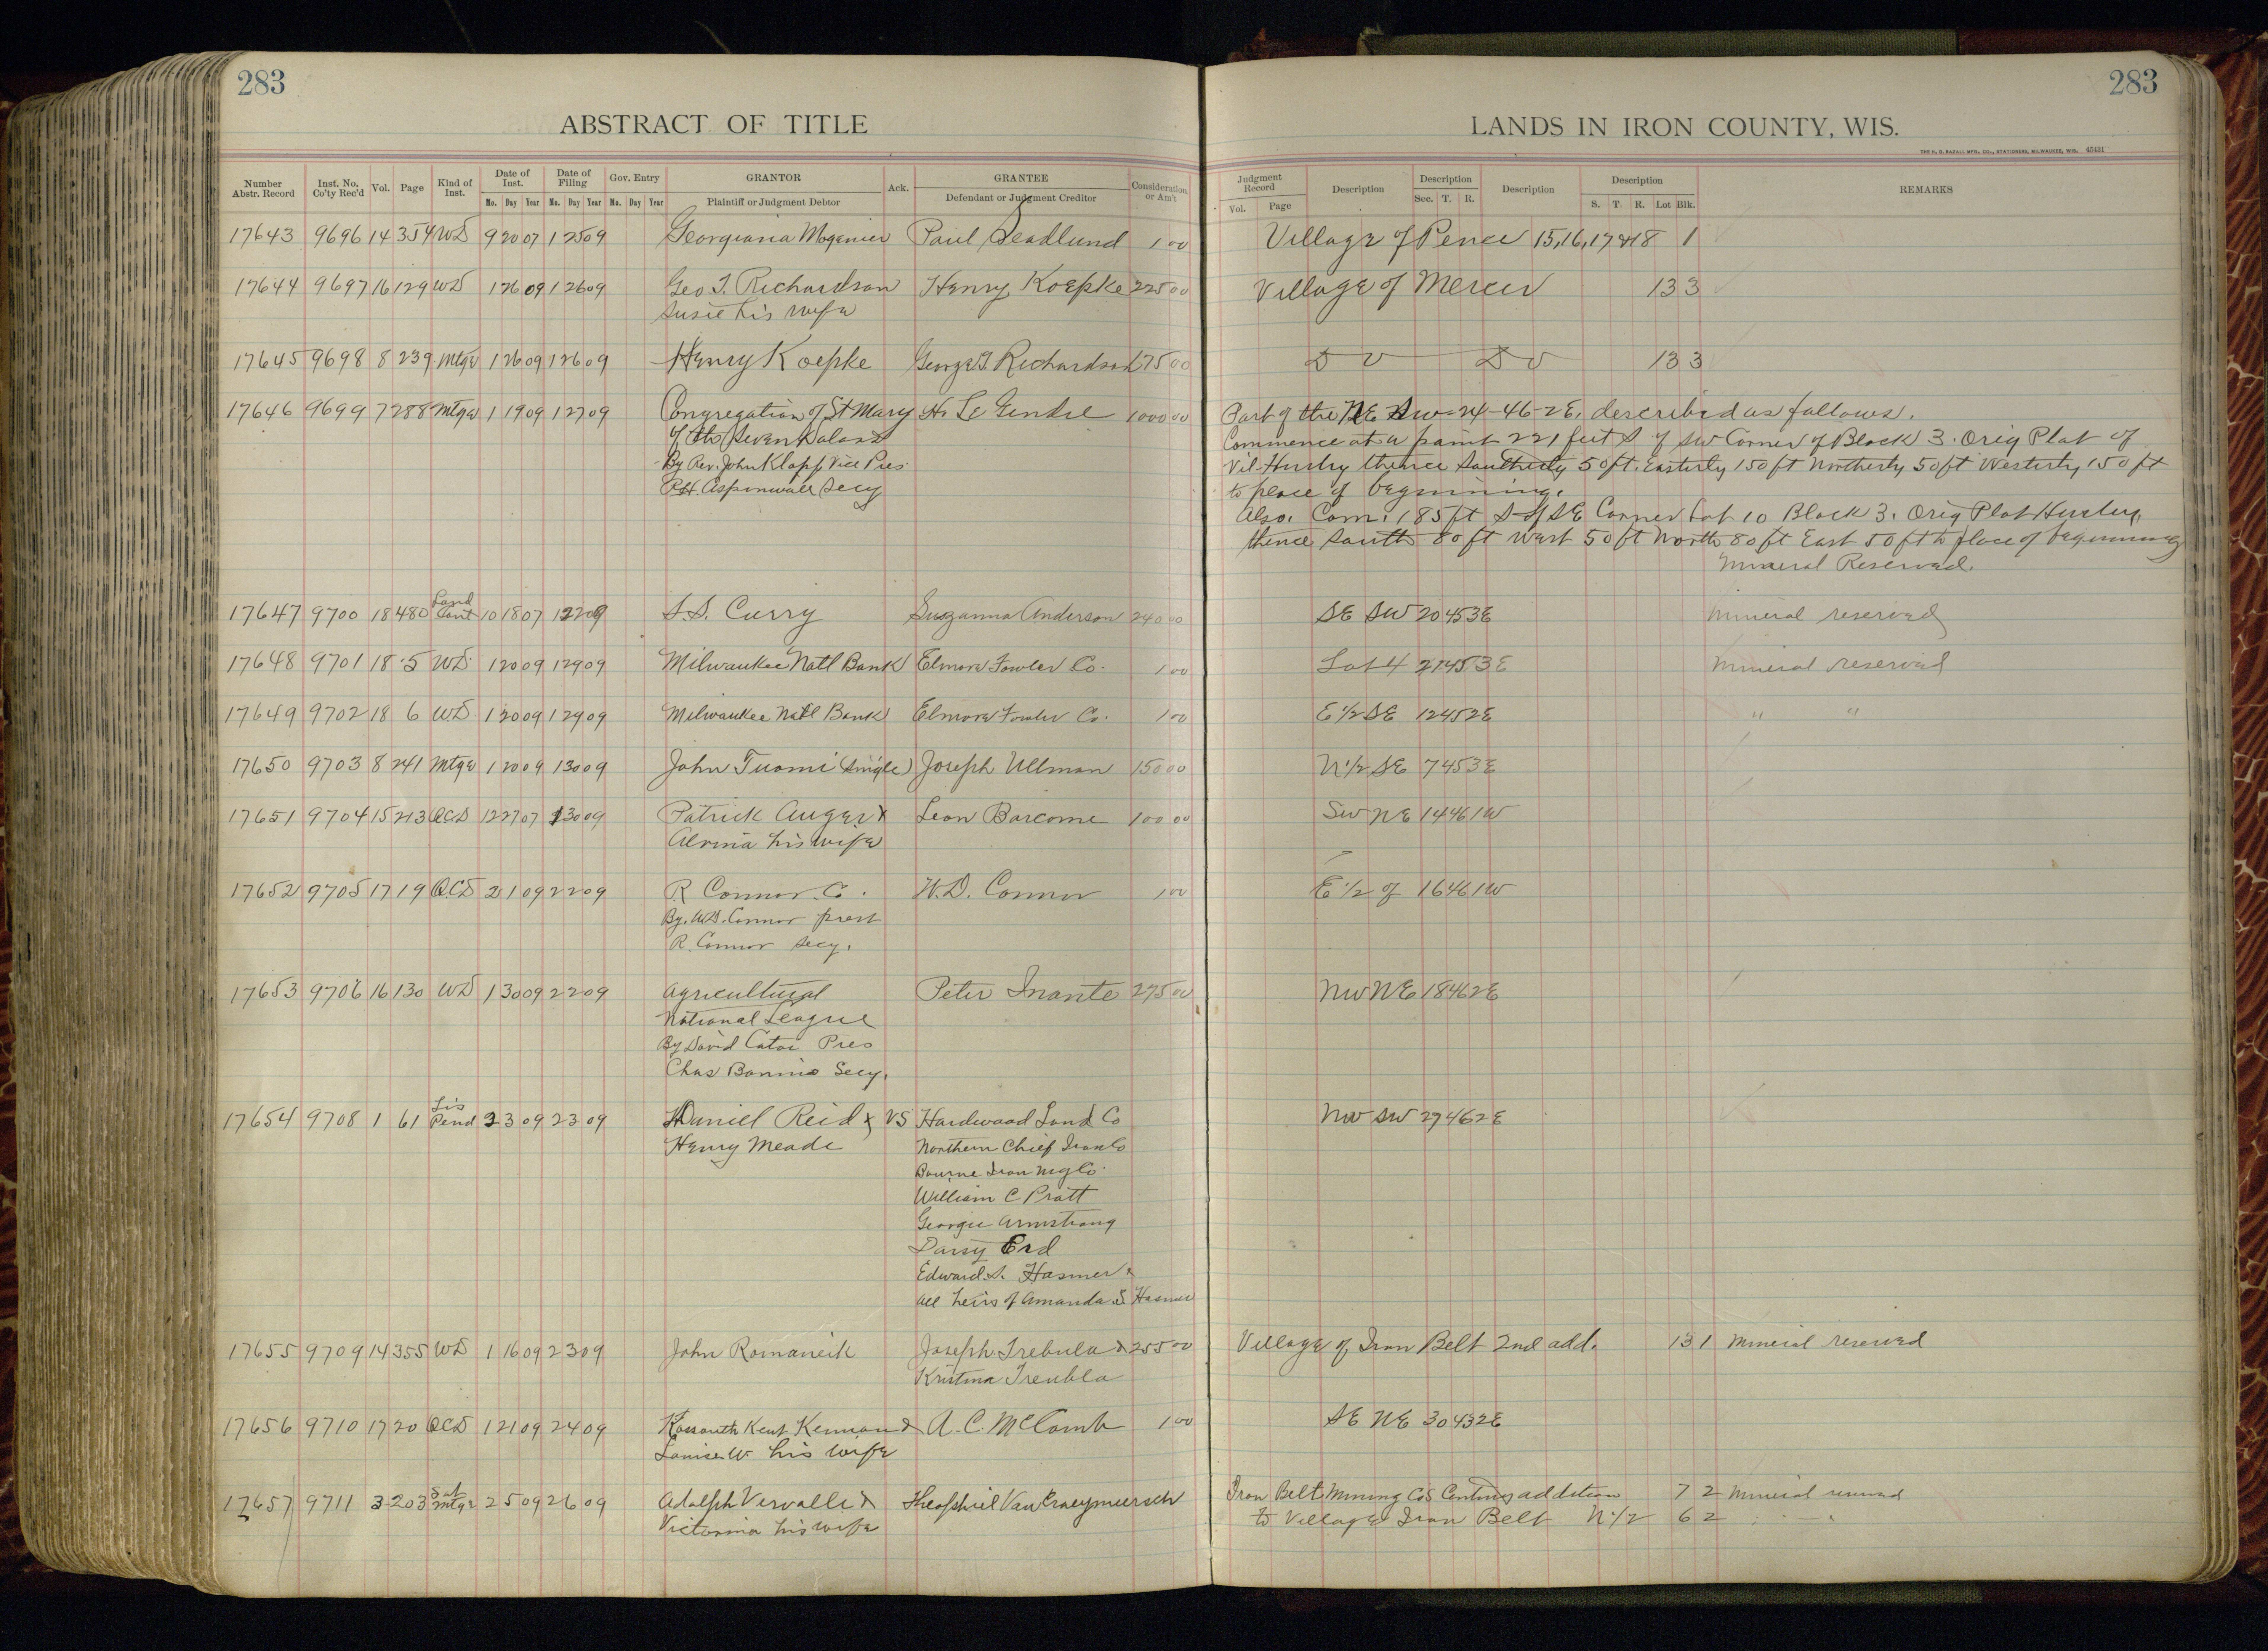 283
283
ABSTRACT OF TITLE
LANDS IN IRON COUNTY, WIS.
THE H. G. RAZALL MFG. CO., STATIONERS, MILWAUKEE, WIS. 45431
Number Abstr. Record Inst. No. Co'ty Rec'd Vol. Page Kind of Inst. Date of Inst. Mo. Day Year Date of Filing Mo. Day Year Gov. Entry Mo. Day Year GRANTOR Plaintiff or Judgment Debtor Ack. GRANTEE Defendant or Judgment Creditor Consideration or Am't
Judgment Record Vol. Page Description Description Sec. T. R. Description Description S. T. R. Lot Blk. REMARKS
17643 9696 14 354 WD 9 20 07 1 25 09 Georgiana Mogenier Paul Seadlund 1 00 Village of Pence 15,16,17&18 1
17644 9697 16 129 WD 1 26 09 1 26 09 Geo T. Richardson Henry Koepke 225 00 Village of Mercer 13 3
Susie his wife
17645 9698 8 239 Mtge 1 26 09 1 26 09 Henry Koepke George T. Richardson 175 00 D o D o 13 3
17646 9699 7 288 Mtge 1 19 09 1 27 09 Congregation of St Mary H. Le Gendre 1000 00 Part of the NE SW-24-46-2E, described as follows.
of the Seven Dolars
By Rev. John Klopp Vice Pres
P.H. Aspinwall Secy
Commence at a point 221 feet S of SW Corner of Block 3. Orig Plat of
Vil-Hurley thence Southerly 50ft. Easterly 150ft Northerly 50ft Westerly 150ft
to place of beginning.
Also. Com. 185ft S of SE Corner Lot 10 Block 3. Orig Plat Hurley,
thence South 80ft West 50ft North 80ft East 50ft to place of beginning
Mineral Reserved.
17647 9700 18 480 Land Cont 10 18 07 1 22 09 S.S. Curry Suzanna Anderson 240 00 SE SW 20 45 3E Mineral reserved
17648 9701 18 5 WD 1 20 09 1 29 09 Milwaukee Natl Bank Elmore Fowler Co. 1 00 Lot 4 27 45 3E Mineral reserved
17649 9702 18 6 WD 1 20 09 1 29 09 Milwaukee Natl Bank Elmore Fowler Co. 1 00 E 1/2 SE 12 45 2E " "
17650 9703 8 241 Mtge 1 20 09 1 30 09 John Tuomi (single) Joseph Ullman 150 00 N 1/2 SE 7 45 3E
17651 9704 15 213 QCD 12 27 07 1 30 09 Patrick Auger & Leon Barcome 100 00 SW NE 14 46 1W
Alvina his wife
17652 9705 17 19 QCD 2 1 09 2 2 09 R Connor Co. W.D. Connor 1 00 E 1/2 of 16 46 1W
By. W.D. Connor prest
R. Connor secy.
17653 9706 16 130 WD 1 30 09 2 2 09 Agricultural Peter Inante 275 00 NW NE 18 46 2E
National League
By David Cator Pres
Chas Bonino Secy.
17654 9708 1 61 Lis Pend 2 3 09 2 3 09 Daniel Reid & VS Hardwood Land Co NW SW 27 46 2E
Henry Meade Northern Chief Iron Co
Bourne Iron Mg Co.
William C Pratt
George Armstrong
Daisy Erd
Edward S. Hasmer &
all heirs of Amanda S Hasmer
17655 9709 14 355 WD 1 16 09 2 3 09 John Romancik Joseph Trebula & 255 00 Village of Iron Belt 2nd add. 13 1 Mineral reserved
Kristina Treubla
17656 9710 17 20 QCD 1 21 09 2 4 09 Kossouth Kent Kennan & A.C. McComb 1 00 SE NE 30 43 2E
Louise W. his wife
17657 9711 3 203 Sat Mtge 2 5 09 2 6 09 Adolph Vervalle & Theophiel Van Craeymeersch Iron Belt Mining Co's addition 7 2 Mineral reserved
Victorina his wife to Village Iron Belt N 1/2 6 2